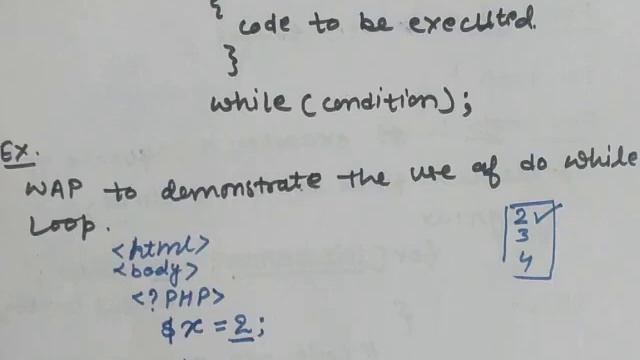 {
code to be executed.
}
while (condition);
Ex.
WAP to demonstrate the use of do while
Loop.
<html>
<body>
<?PHP>
$x = 2;
2 ✓
3
4